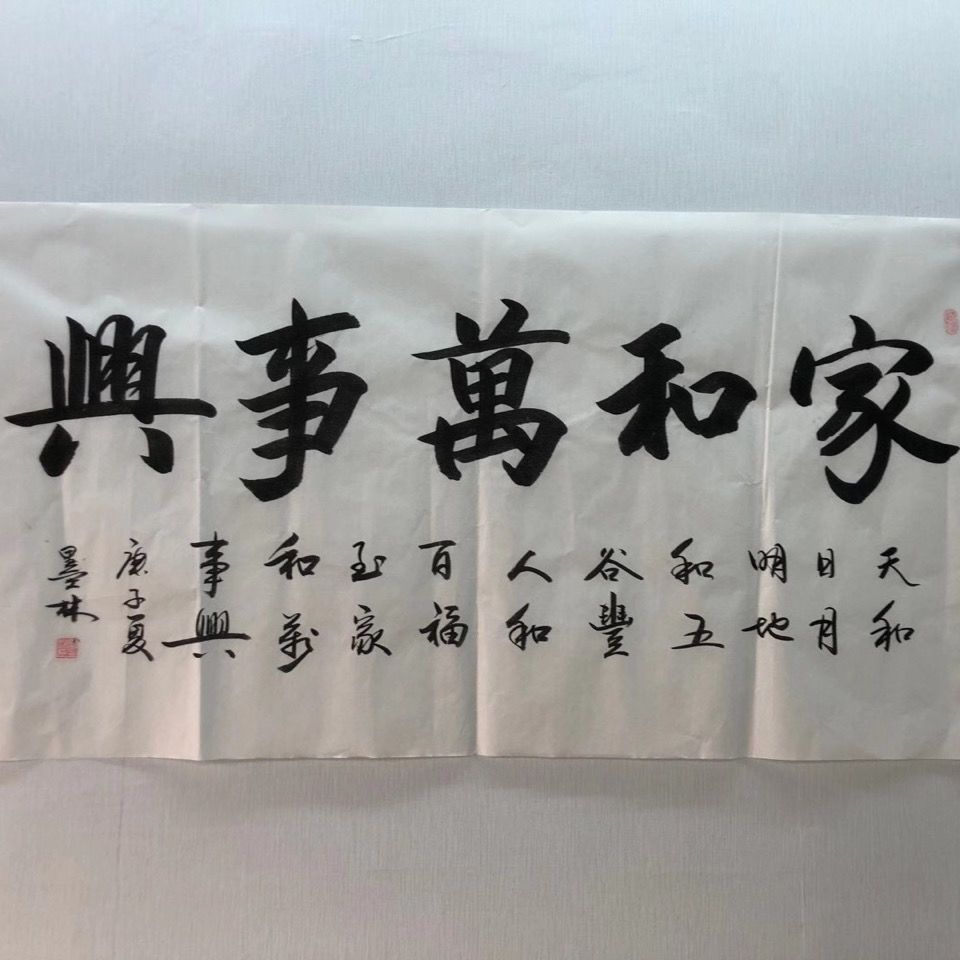 家和萬事興
天和
日月
明地
和五
谷豐
人和
百福
至家
和萬
事興
庚子夏
墨林